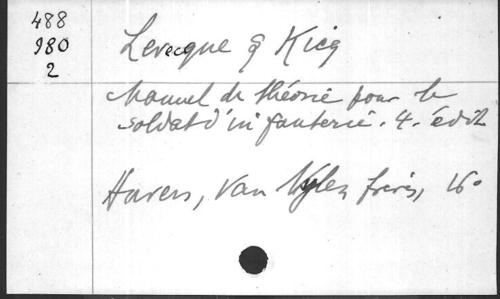 488
980
2
Levecque & Kicq
Manuel de théorie pour le
soldat d'infanterie. 4. édit
Anvers, Van frères, 16°